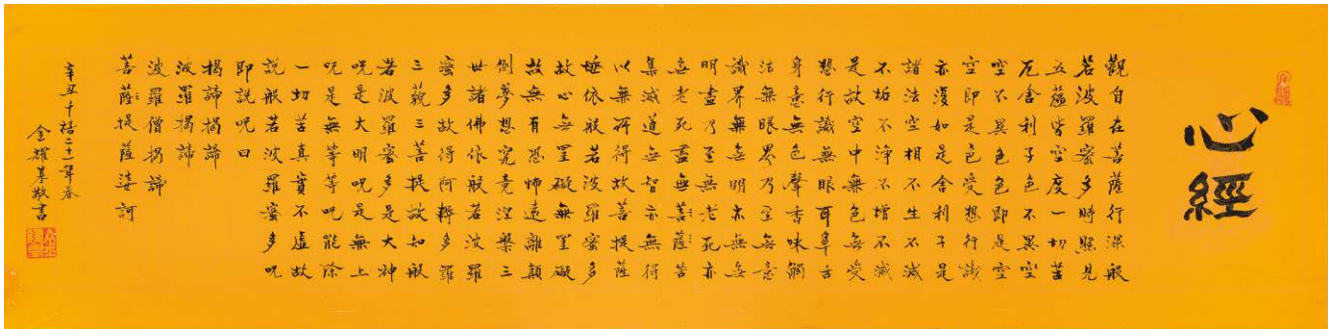 心經
觀自在菩薩行深般
若波羅蜜多時照見
五蘊皆空度一切苦
厄舍利子色不異空
空不異色色即是空
空即是色受想行識
亦復如是舍利子是
諸法空相不生不滅
不垢不淨不增不減
是故空中無色無受
想行識無眼耳鼻舌
身意無色聲香味觸
法無眼界乃至無意
識界無無明亦無無
明盡乃至無老死亦
無老死盡無菩薩苦
集滅道無智亦無得
以無所得故菩提薩
埵依般若波羅蜜多
故心無罣礙無罣礙
故無有恐怖遠離顛
倒夢想究竟涅槃三
世諸佛依般若波羅
蜜多故得阿耨多羅
三藐三菩提故知般
若波羅蜜多是大神
呪是大明呪是無上
呪是無等等呪能除
一切苦真實不虛故
說般若波羅蜜多呪
即說呪曰
揭諦揭諦
波羅揭諦
波羅僧揭諦
菩薩提薩婆訶
辛丑二十一年春
金耀基敬書